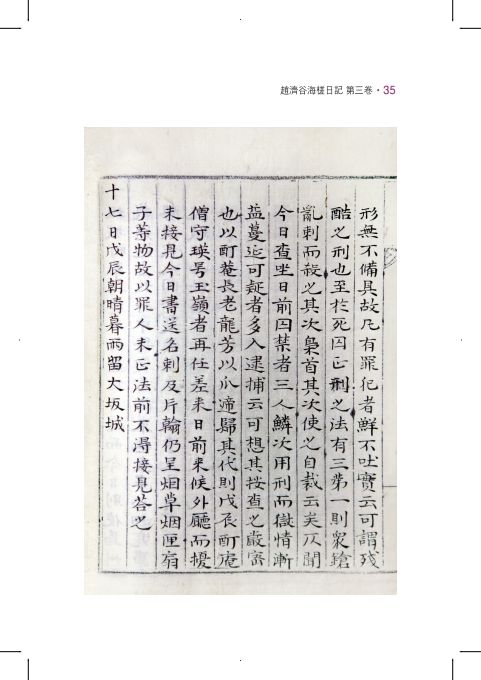 趙濟谷海槎日記 第三卷 · 35
形無不備具故凡有罪犯者鮮不吐實云可謂殘
酷之刑也至於死囚正刑之法有三第一則衆鎗
亂刺而殺之其次梟首其次使之自裁云矣仄聞
今日查坐日前囚禁者三人鱗次用刑而獄情漸
益蔓延可疑者多入逮捕云可想其按查之嚴密
也以酊菴長老龍芳以瓜遞歸其代則戊辰酊庵
僧守瑛号玉嶺者再任差来日前来候外廳而擾
未接見今日書送名刺及片翰仍呈烟草烟匣扇
子等物故以罪人未正法前不得接見荅之
十七日戊辰朝晴暮雨留大坂城